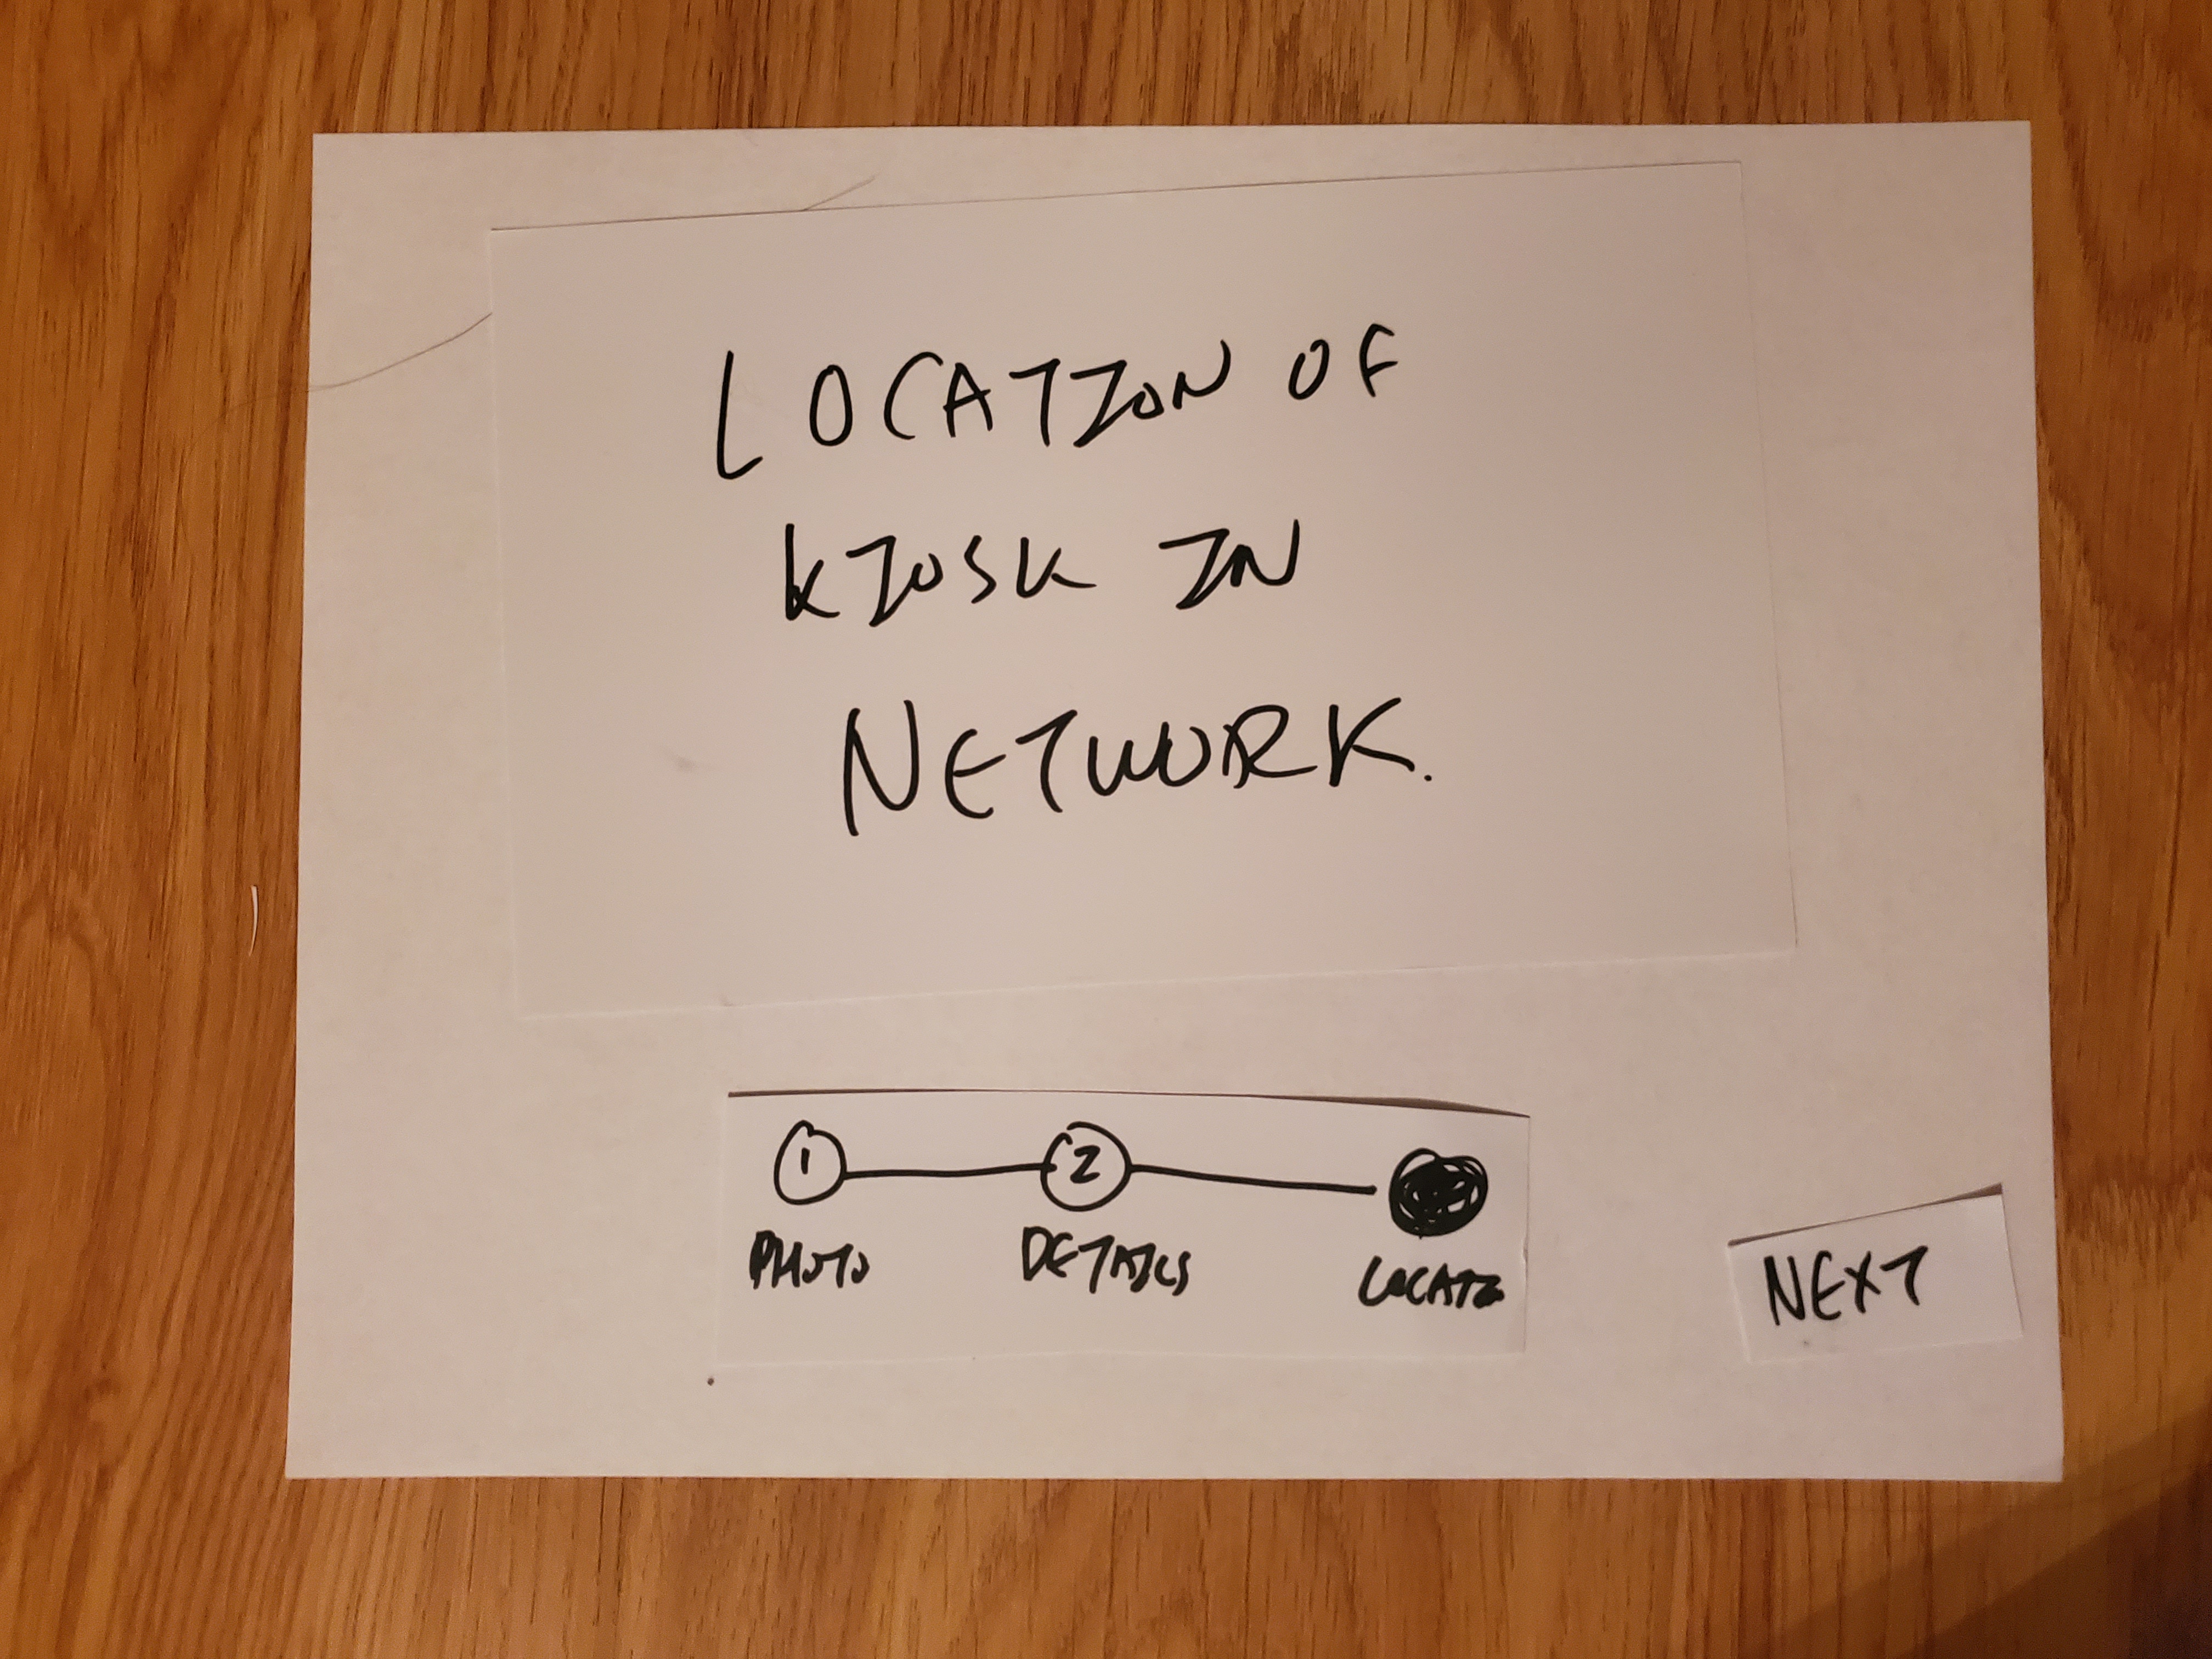 LOCATION OF
KIOSK IN
NETWORK.
1 2
PHOTO DETAILS LOCATE
NEXT